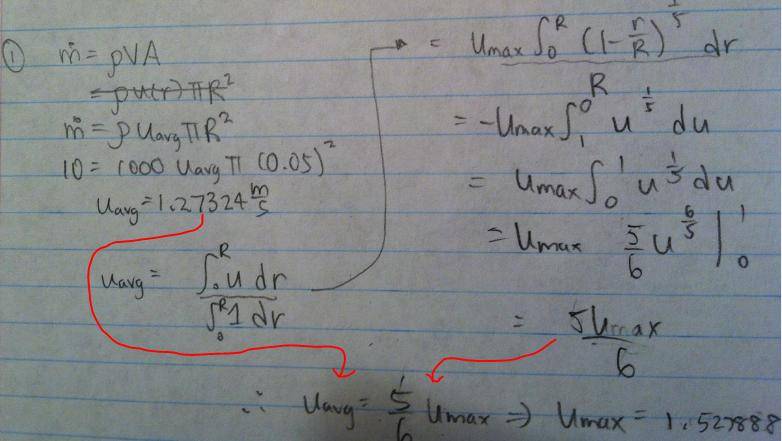 ① ṁ = ρVA
= ρu(r)πR²
ṁ = ρ Uavg πR²
10 = 1000 Uavg π (0.05)²
Uavg = 1.27324 m/s
Uavg = ∫₀ᴿ u dr / ∫₀ᴿ 1 dr
= Umax ∫₀ᴿ (1 - r/R)^(1/5) dr / R
= -Umax ∫₁⁰ u^(1/5) du
= Umax ∫₀¹ u^(1/5) du
= Umax 5/6 u^(6/5) |₀¹
= 5Umax / 6
∴ Uavg = 5/6 Umax ⇒ Umax = 1.527888